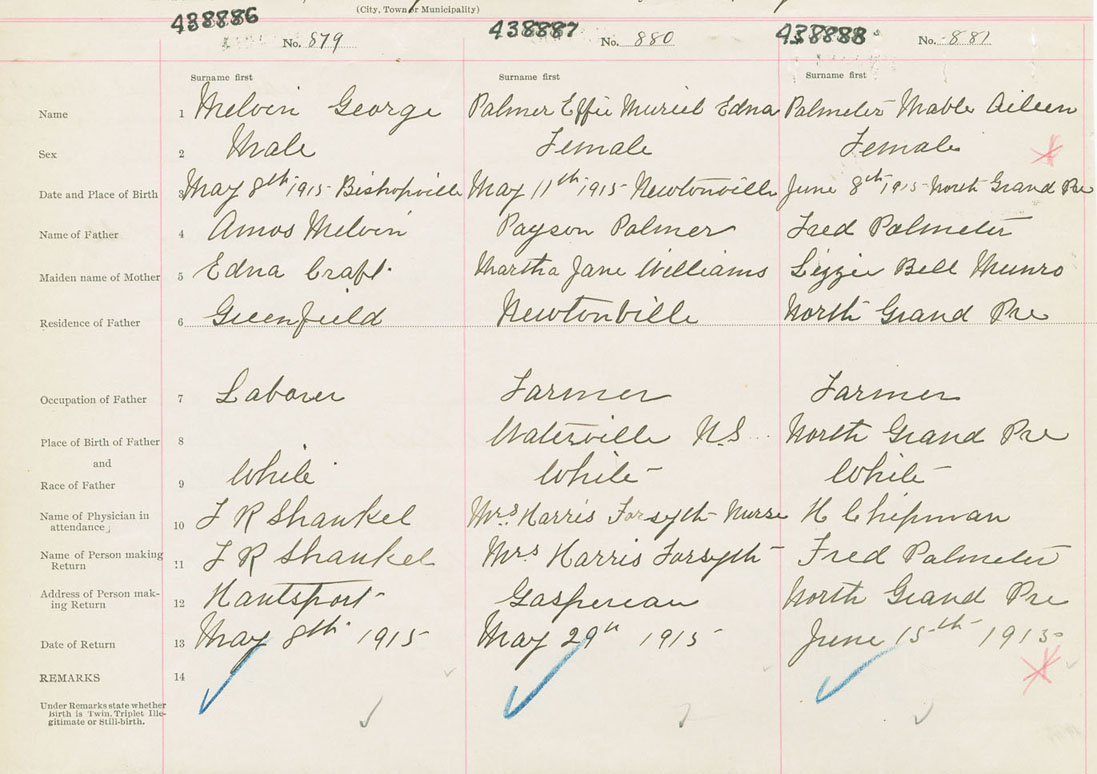 (City, Town or Municipality)
438886 No. 879 438887 No. 880 438888 No. 881
Surname first Surname first Surname first
Name 1 Melvin George Palmer Effie Muriel Edna Palmeter Mable Aileen
Sex 2 Male Female Female
Date and Place of Birth 3 May 8th 1915 Bishopville May 11th 1915 Newtonville June 8th 1915 North Grand Pre
Name of Father 4 Amos Melvin Payson Palmer Fred Palmeter
Maiden name of Mother 5 Edna Craft Martha Jane Williams Lizzie Bell Munro
Residence of Father 6 Greenfield Newtonville North Grand Pre
Occupation of Father 7 Laborer Farmer Farmer
Place of Birth of Father 8 Waterville N.S. North Grand Pre
and
Race of Father 9 White White White
Name of Physician in
attendance, 10 F R Shankel Mrs. Harris Forsyth Nurse H Chipman
Name of Person making
Return 11 F R Shankel Mrs Harris Forsyth Fred Palmeter
Address of Person mak-
ing Return 12 Hantsport Gaspereau North Grand Pre
Date of Return 13 May 8th 1915 May 29th 1915 June 15th 1915
REMARKS 14
Under Remarks state whether
Birth is Twin, Triplet Ille-
gitimate or Still-birth.